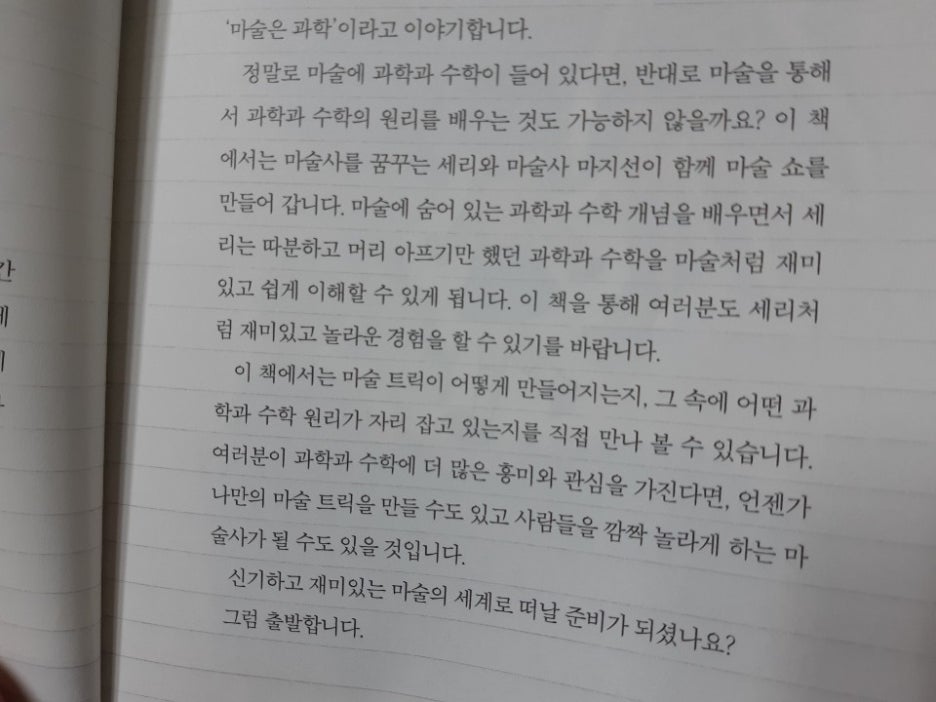 '마술은 과학'이라고 이야기합니다.
정말로 마술에 과학과 수학이 들어 있다면, 반대로 마술을 통해
서 과학과 수학의 원리를 배우는 것도 가능하지 않을까요? 이 책
에서는 마술사를 꿈꾸는 세리와 마술사 마지선이 함께 마술 쇼를
만들어 갑니다. 마술에 숨어 있는 과학과 수학 개념을 배우면서 세
리는 따분하고 머리 아프기만 했던 과학과 수학을 마술처럼 재미
있고 쉽게 이해할 수 있게 됩니다. 이 책을 통해 여러분도 세리처
럼 재미있고 놀라운 경험을 할 수 있기를 바랍니다.
이 책에서는 마술 트릭이 어떻게 만들어지는지, 그 속에 어떤 과
학과 수학 원리가 자리 잡고 있는지를 직접 만나 볼 수 있습니다.
여러분이 과학과 수학에 더 많은 흥미와 관심을 가진다면, 언젠가
나만의 마술 트릭을 만들 수도 있고 사람들을 깜짝 놀라게 하는 마
술사가 될 수도 있을 것입니다.
신기하고 재미있는 마술의 세계로 떠날 준비가 되셨나요?
그럼 출발합니다.